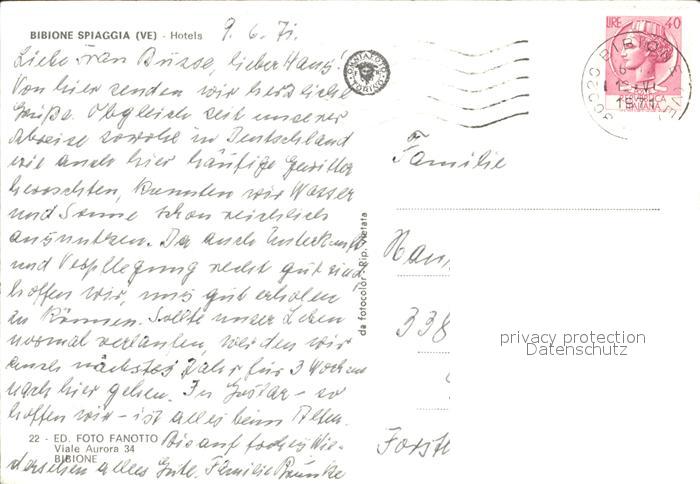 BIBIONE SPIAGGIA (VE) - Hotels
9. 6. 71.
Liebe Frau Busse, lieber Hans!
Von hier senden wir herzliche
Grüße. Obgleich seit unserer
Abreise sowohl in Deutschland
wie auch hier häufige Gewitter
herrschten, konnten wir Wasser
und Sonne schon reichlich
ausnutzen. Da auch Unterkunft
und Verpflegung recht gut sind
hoffen wir, uns gut erholen
zu können. Sollte unser Leben
normal verlaufen, werden wir
auch nächstes Jahr für 3 Wochen
nach hier gehen. In Goslar - so
hoffen wir - ist alles beim Alten.
Bis auf frohes Wie-
dersehen alles Gute. Familie
22 - ED. FOTO FANOTTO
Viale Aurora 34
BIBIONE
da fotocolor - Rip. vietata
OMNIAFOTO
TORINO
LIRE 40
30020 BIBIONE
1971
Familie
Han
338
Forsth
privacy protection
Datenschutz